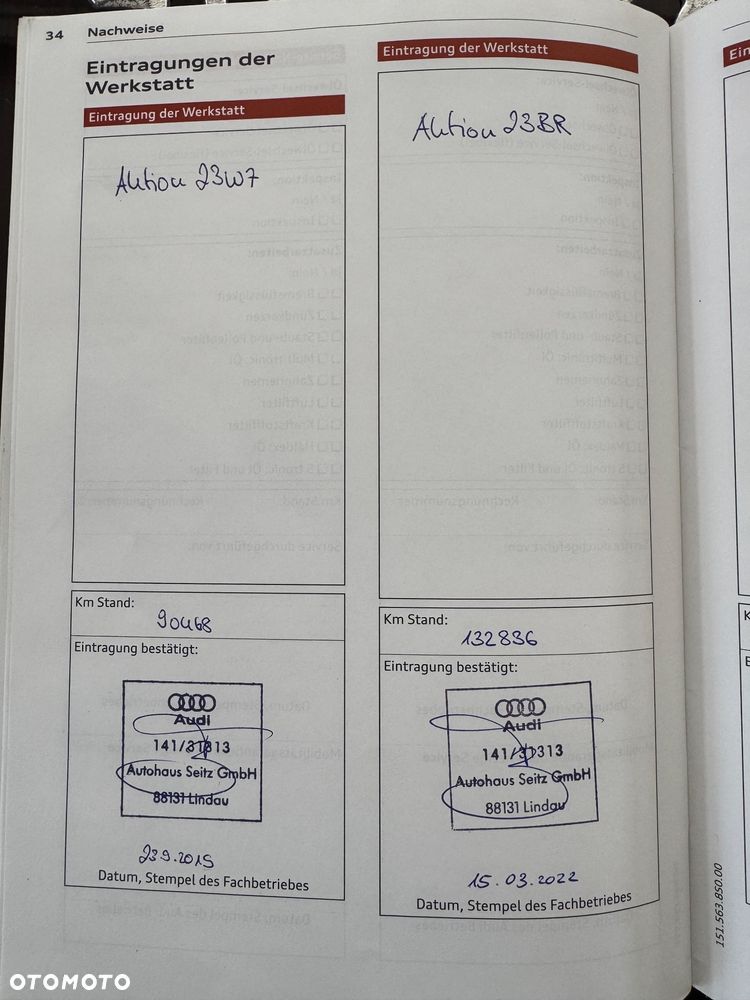 34 Nachweise
Eintragungen der
Werkstatt
Eintragung der Werkstatt
Aktion 23W7
Km Stand:
90468
Eintragung bestätigt:
Audi
141/31313
Autohaus Seitz GmbH
88131 Lindau
23.9.2015
Datum, Stempel des Fachbetriebes
Eintragung der Werkstatt
Aktion 23BR
Km Stand:
132836
Eintragung bestätigt:
Audi
141/31313
Autohaus Seitz GmbH
88131 Lindau
15.03.2022
Datum, Stempel des Fachbetriebes
151.563.850.00
OTOMOTO